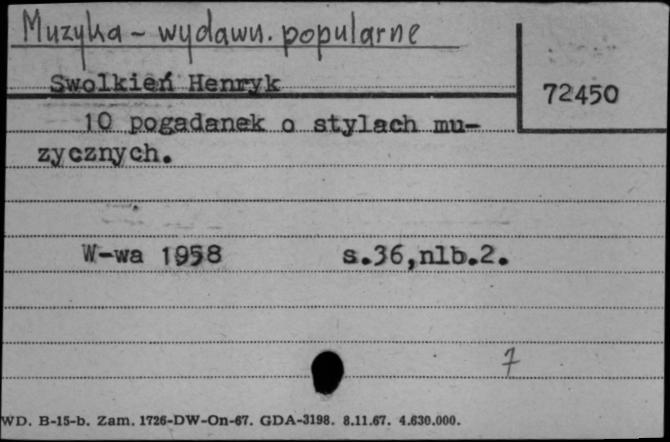 Muzyka - wydawn. popularne
Swolkień Henryk
72450
10 pogadanek o stylach mu-
zycznych.
W-wa 1958 s.36,nlb.2.
7
WD. B-15-b. Zam. 1726-DW-On-67. GDA-3198. 8.11.67. 4.630.000.